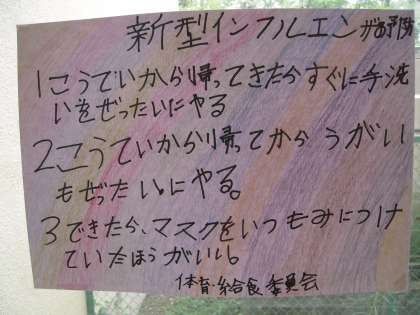 新型インフルエンザ予防
1こうていから帰ってきたらすぐに手洗
いをぜったいにやる
2こうていから帰ってから うがい
もぜったいにやる。
3できたら、マスクをいつもみにつけ
ていたほうがいい。
体育・給食委員会